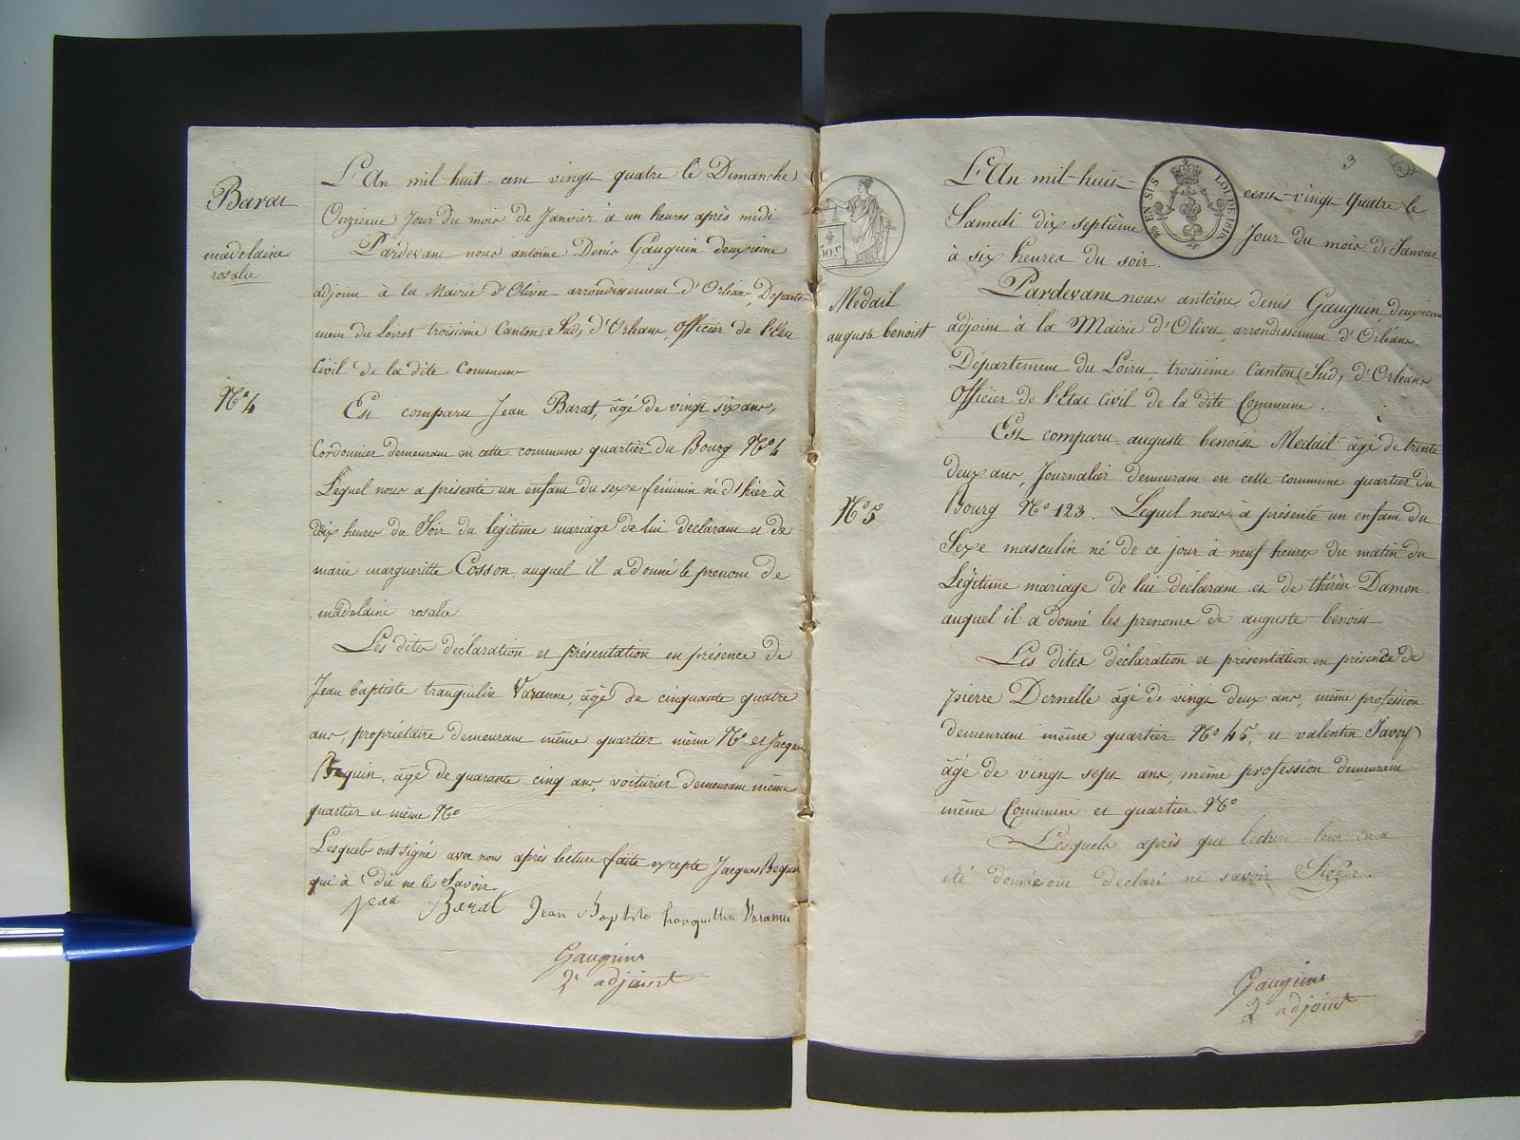 Barat
madelaine
rosalie
N° 4
L'An mil huit cent vingt quatre le Dimanche
Onzieme Jour du mois de Janvier à un heures après midi
Pardevant nous antoine Denis Gauguin deuxieme
adjoint à la Mairie d'Olivet arrondissement d'Orléans, Departe-
ment du Loiret troisieme Canton (Sud) d'Orléans, Officier de l'Etat
Civil de la dite Commune
Est comparu Jean Barat, âgé de vingt six ans,
Cordonnier demeurant en cette commune quartier du Bourg N° 4
Lequel nous a présenté un enfant du sexe féminin né d'hier à
dix heures du Soir du légitime mariage de lui déclarant et de
marie margueritte Cosson auquel il a donné le prenom de
madelaine rosalie
Les dites déclaration et présentation en présence de
Jean baptiste tranquille Varenne, âgé de cinquante quatre
ans, propriétaire demeurant même quartier même N° et Jacques
Bequin, âgé de quarante cinq ans, voiturier demeurant même
quartier et même N°
Lesquels ont signé avec nous après lecture faite excepté Jacques Bequin
qui à dit ne le Savoir
Jean Barat Jean Baptiste tranquille Varenne
Gauguin
2e adjoint
3
BIEN SUS LOI DE 1816
Medail
auguste benoist
N° 5
L'An mil-huit- cent-vingt quatre le
Samedi dix septième Jour du mois de Janvier
à six heures du soir.
Pardevant nous antoine denis Gauguin deuxieme
adjoint à la Mairie d'Olivet, arrondissement d'Orléans
Département du Loiret, troisième Canton (Sud) d'Orléans
Officier de l'Etat Civil de la dite Commune.
Est comparu auguste benoist Medail âgé de trente
deux ans, Journalier demeurant en cette commune quartier du
Bourg N° 123. Lequel nous à présenté un enfant du
Sexe masculin né de ce jour à neuf heures du matin du
Légitime mariage de lui déclarant et de thérèse Damon
auquel il a donné les prenoms de auguste benoist
Les dites déclaration et présentation en présence de
pierre Dernelle âgé de vingt deux ans, même profession
demeurant même quartier N° 45, et valentin Savoy
âgé de vingt sept ans, même profession demeurant
même Commune et quartier N°
Lesquels après que lecture leur en a
été donnée ont déclaré ne savoir Signer.
Gauguin
2 adjoint